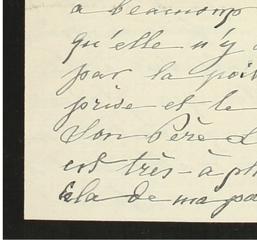 a beaucoup
qu'elle n'y
par la
prise et le
Son Père
est très-à
de ma